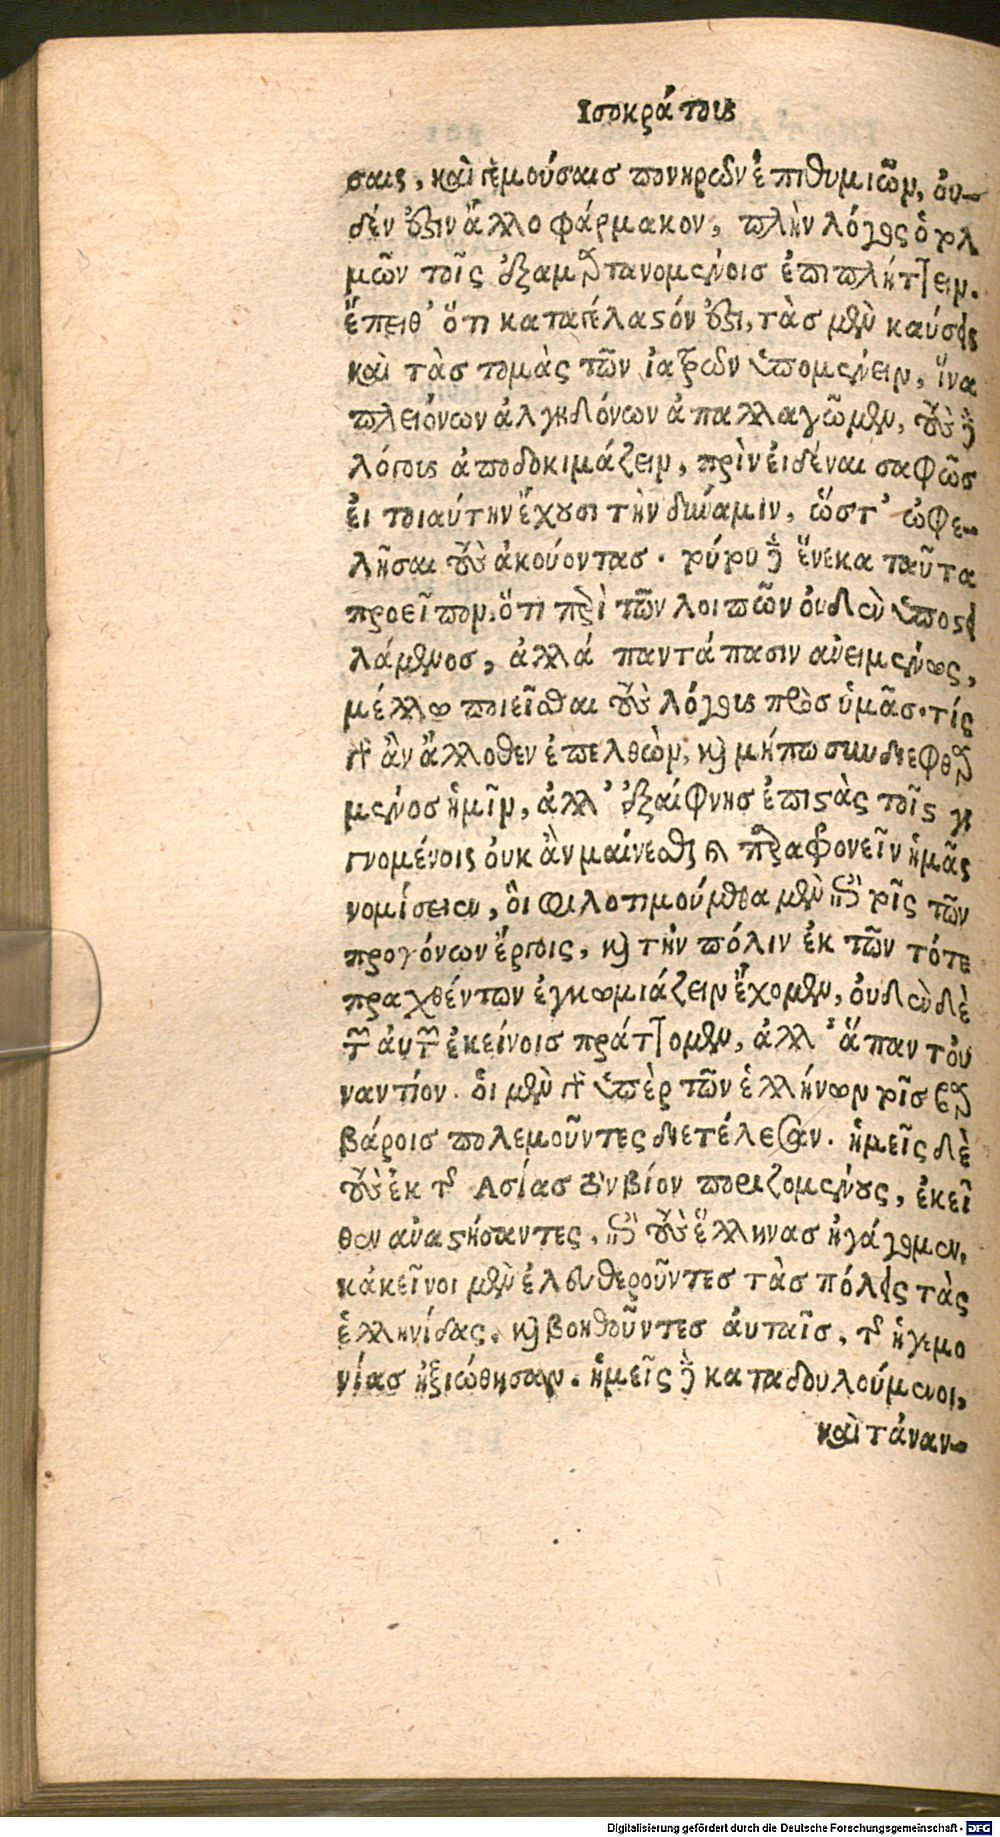 Ισοκράτους
σαις, καὶ γεμούσαις πονηρῶν ἐπιθυμιῶν, οὐ-
δέν ἐστιν ἄλλο φάρμακον, πλὴν λόγος ὁ τολ
μῶν τοῖς ἐξαμαρτανομένοις ἐπιπλήττειν.
ἔπειθ' ὅτι καταγέλαστόν ἐστι, τὰς μὲν καύσεις
καὶ τὰς τομὰς τῶν ἰατρῶν ὑπομένειν, ἵνα
πλειόνων ἀλγηδόνων ἀπαλλαγῶμεν, τοὺς δὲ
λόγους ἀποδοκιμάζειν, πρὶν εἰδέναι σαφῶς
εἰ τοιαύτην ἔχουσι τὴν δύναμιν, ὥστ' ὠφε-
λῆσαι τοὺς ἀκούοντας. τούτου δὲ ἕνεκα ταῦτα
προεῖπον, ὅτι περὶ τῶν λοιπῶν οὐδὲν ὑποστει
λάμενος, ἀλλά παντάπασιν ἀνειμένως,
μέλλω ποιεῖσθαι τοὺς λόγους πρὸς ὑμᾶς. τίς
γὰρ ἂν ἄλλοθεν ἐπελθὼν, καὶ μήπω συνδιεφθαρ
μένος ἡμῖν, ἀλλ' ἐξαίφνης ἐπιστὰς τοῖς γι
γνομένοις οὐκ ἂν μαίνεσθαι καὶ παραφρονεῖν ἡμᾶς
νομίσειεν, οἳ φιλοτιμούμεθα μὲν ἐπὶ τοῖς τῶν
προγόνων ἔργοις, καὶ τὴν πόλιν ἐκ τῶν τότε
πραχθέντων ἐγκωμιάζειν ἔχομεν, οὐδὲν δὲ
τῶν αὐτῶν ἐκείνοις πράττομεν, ἀλλ' ἅπαν τοὐ
ναντίον. οἱ μὲν γὰρ ὑπὲρ τῶν ἑλλήνων τοῖς βαρ
βάροις πολεμοῦντες διετέλεσαν. ἡμεῖς δὲ
τοὺς ἐκ τῆς Ασίας τὸν βίον ποριζομένους, ἐκεῖ
θεν ἀναστήσαντες, ἐπὶ τοὺς ἕλληνας ἠγάγομεν,
κἀκεῖνοι μὲν ἐλευθεροῦντες τὰς πόλεις τὰς
ἑλληνίδας, καὶ βοηθοῦντες αὐταῖς, τῆς ἡγεμο
νίας ἠξιώθησαν. ἡμεῖς δὲ καταδουλούμενοι,
καὶ τἀναν-
Digitalisierung gefördert durch die Deutsche Forschungsgemeinschaft - DFG